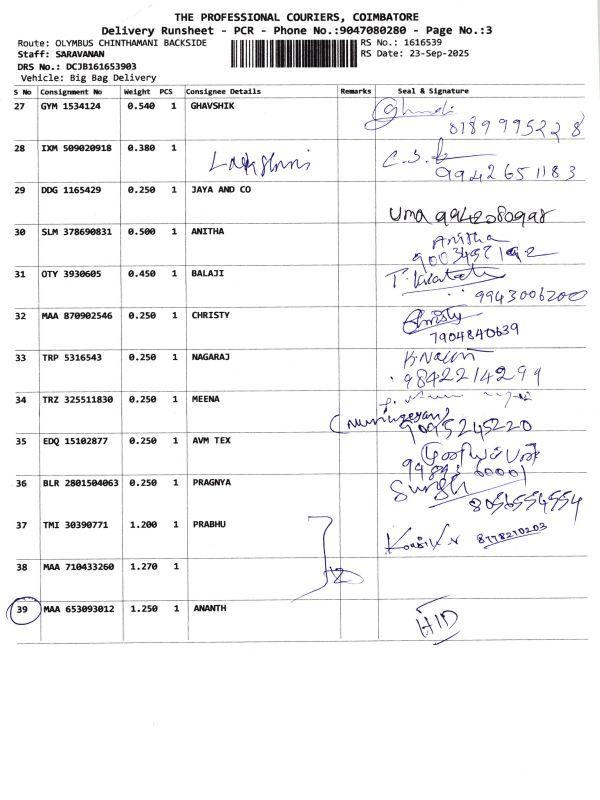 THE PROFESSIONAL COURIERS, COIMBATORE
Delivery Runsheet - PCR - Phone No.:9047080280 - Page No.:3
Route: OLYMBUS CHINTHAMANI BACKSIDE RS No.: 1616539
Staff: SARAVANAN RS Date: 23-Sep-2025
DRS No.: DCJB161653903
Vehicle: Big Bag Delivery
S No Consignment No Weight PCS Consignee Details Remarks Seal & Signature
27 GYM 1534124 0.540 1 GHAVSHIK
28 IXM 509020918 0.380 1 Lakshmi
9942651183
29 DDG 1165429 0.250 1 JAYA AND CO
Uma
30 SLM 378690831 0.500 1 ANITHA Anitha
31 OTY 3930605 0.450 1 BALAJI
9943006200
32 MAA 870902546 0.250 1 CHRISTY Christy
7904840639
33 TRP 5316543 0.250 1 NAGARAJ
9842214299
34 TRZ 325511830 0.250 1 MEENA
9095245220
35 EDQ 15102877 0.250 1 AVM TEX
36 BLR 2801504063 0.250 1 PRAGNYA
8056554554
37 TMI 30390771 1.200 1 PRABHU 8778210203
38 MAA 710433260 1.270 1
39 MAA 653093012 1.250 1 ANANTH
HID